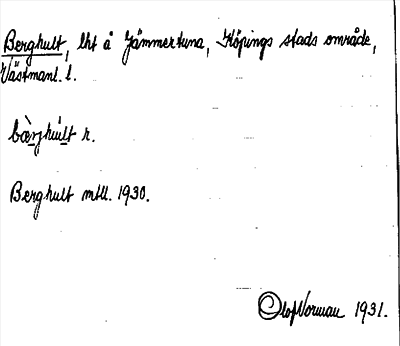 Berghult, lht å Jämmertuna, Köpings stads område,
Västmanl. l.
bæ̀rjhúlt n.
Berghult mtl. 1930.
Olof Norman 1931.